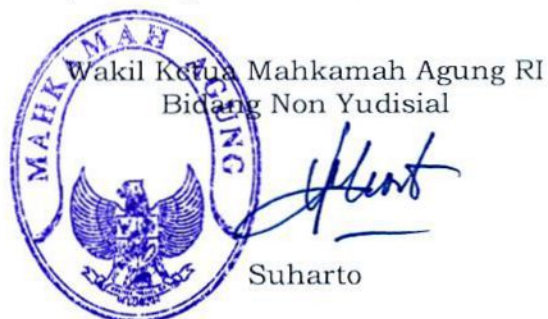 MAHKAMAH AGUNG
Wakil Ketua Mahkamah Agung RI
Bidang Non Yudisial
Suharto